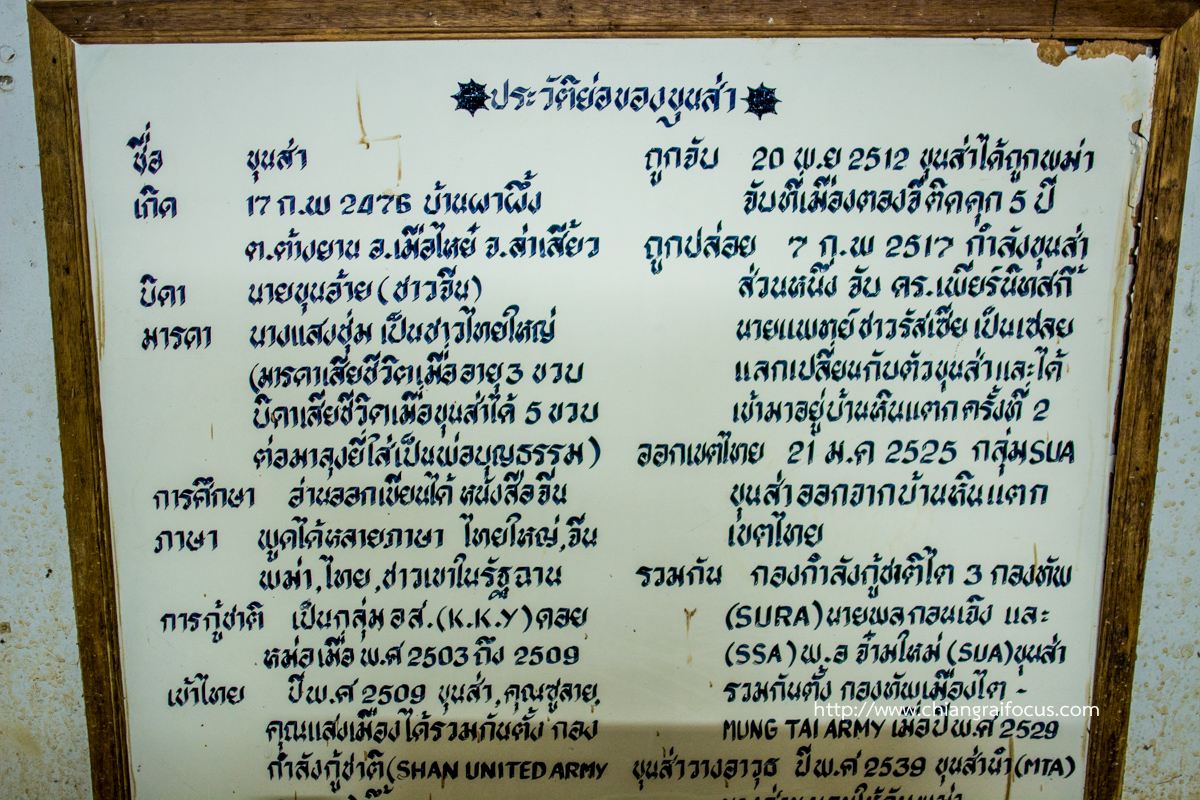 ประวัติย่อของขุนส่า
ชื่อ ขุนส่า
เกิด 17 ก.พ 2476 บ้านผาผึ้ง
ต.ต้างยาน อ.เมือไหย๋ จ.ล่าเสี้ยว
บิดา นายขุนอ้าย (ชาวจีน)
มารดา นางแสงชุ่ม เป็นชาวไทยใหญ่
(มารดาเสียชีวิตเมื่ออายุ 3 ขวบ
บิดาเสียชีวิตเมื่อขุนส่าได้ 5 ขวบ
ต่อมาลุงยี่ใส่เป็นพ่อบุญธรรม)
การศึกษา อ่านออกเขียนได้ หนังสือจีน
ภาษา พูดได้หลายภาษา ไทยใหญ่,จีน
พม่า,ไทย,ชาวเขาในรัฐฉาน
การกู้ชาติ เป็นกลุ่ม อส.(K.K.Y) ดอย
หม่อเมื่อ พ.ศ 2503 ถึง 2509
เข้าไทย ปี พ.ศ 2509 ขุนส่า,คุณซูลาย,
คุณแสงเมืองได้รวมกันตั้ง กอง
กำลังกู้ชาติ (SHAN UNITED ARMY
ถูกจับ 20 พ.ย 2512 ขุนส่าได้ถูกพม่า
จับที่เมืองตองจีติดคุก 5 ปี
ถูกปล่อย 7 ก.พ 2517 กำลังขุนส่า
ส่วนหนึ่ง จับ ดร.เพียร์นิทสกี้
นายแพทย์ชาวรัสเซีย เป็นเชลย
แลกเปลี่ยนกับตัวขุนส่าและได้
เข้ามาอยู่บ้านหินแตกครั้งที่ 2
ออกเขตไทย 21 ม.ค 2525 กลุ่ม SUA
ขุนส่าออกจากบ้านหินแตก
เขตไทย
รวมกัน กองกำลังกู้ชาติไต 3 กองทัพ
(SURA) นายพลกอนเจิง และ
(SSA) พ.อ จ๋ามใหม่ (SUA) ขุนส่า
รวมกันตั้ง กองทัพเมืองไต -
MUNG TAI ARMY เมื่อปี พ.ศ 2529
ขุนส่าวางอาวุธ ปี พ.ศ 2539 ขุนส่านำ (MTA)
http://www.chiangraifocus.com